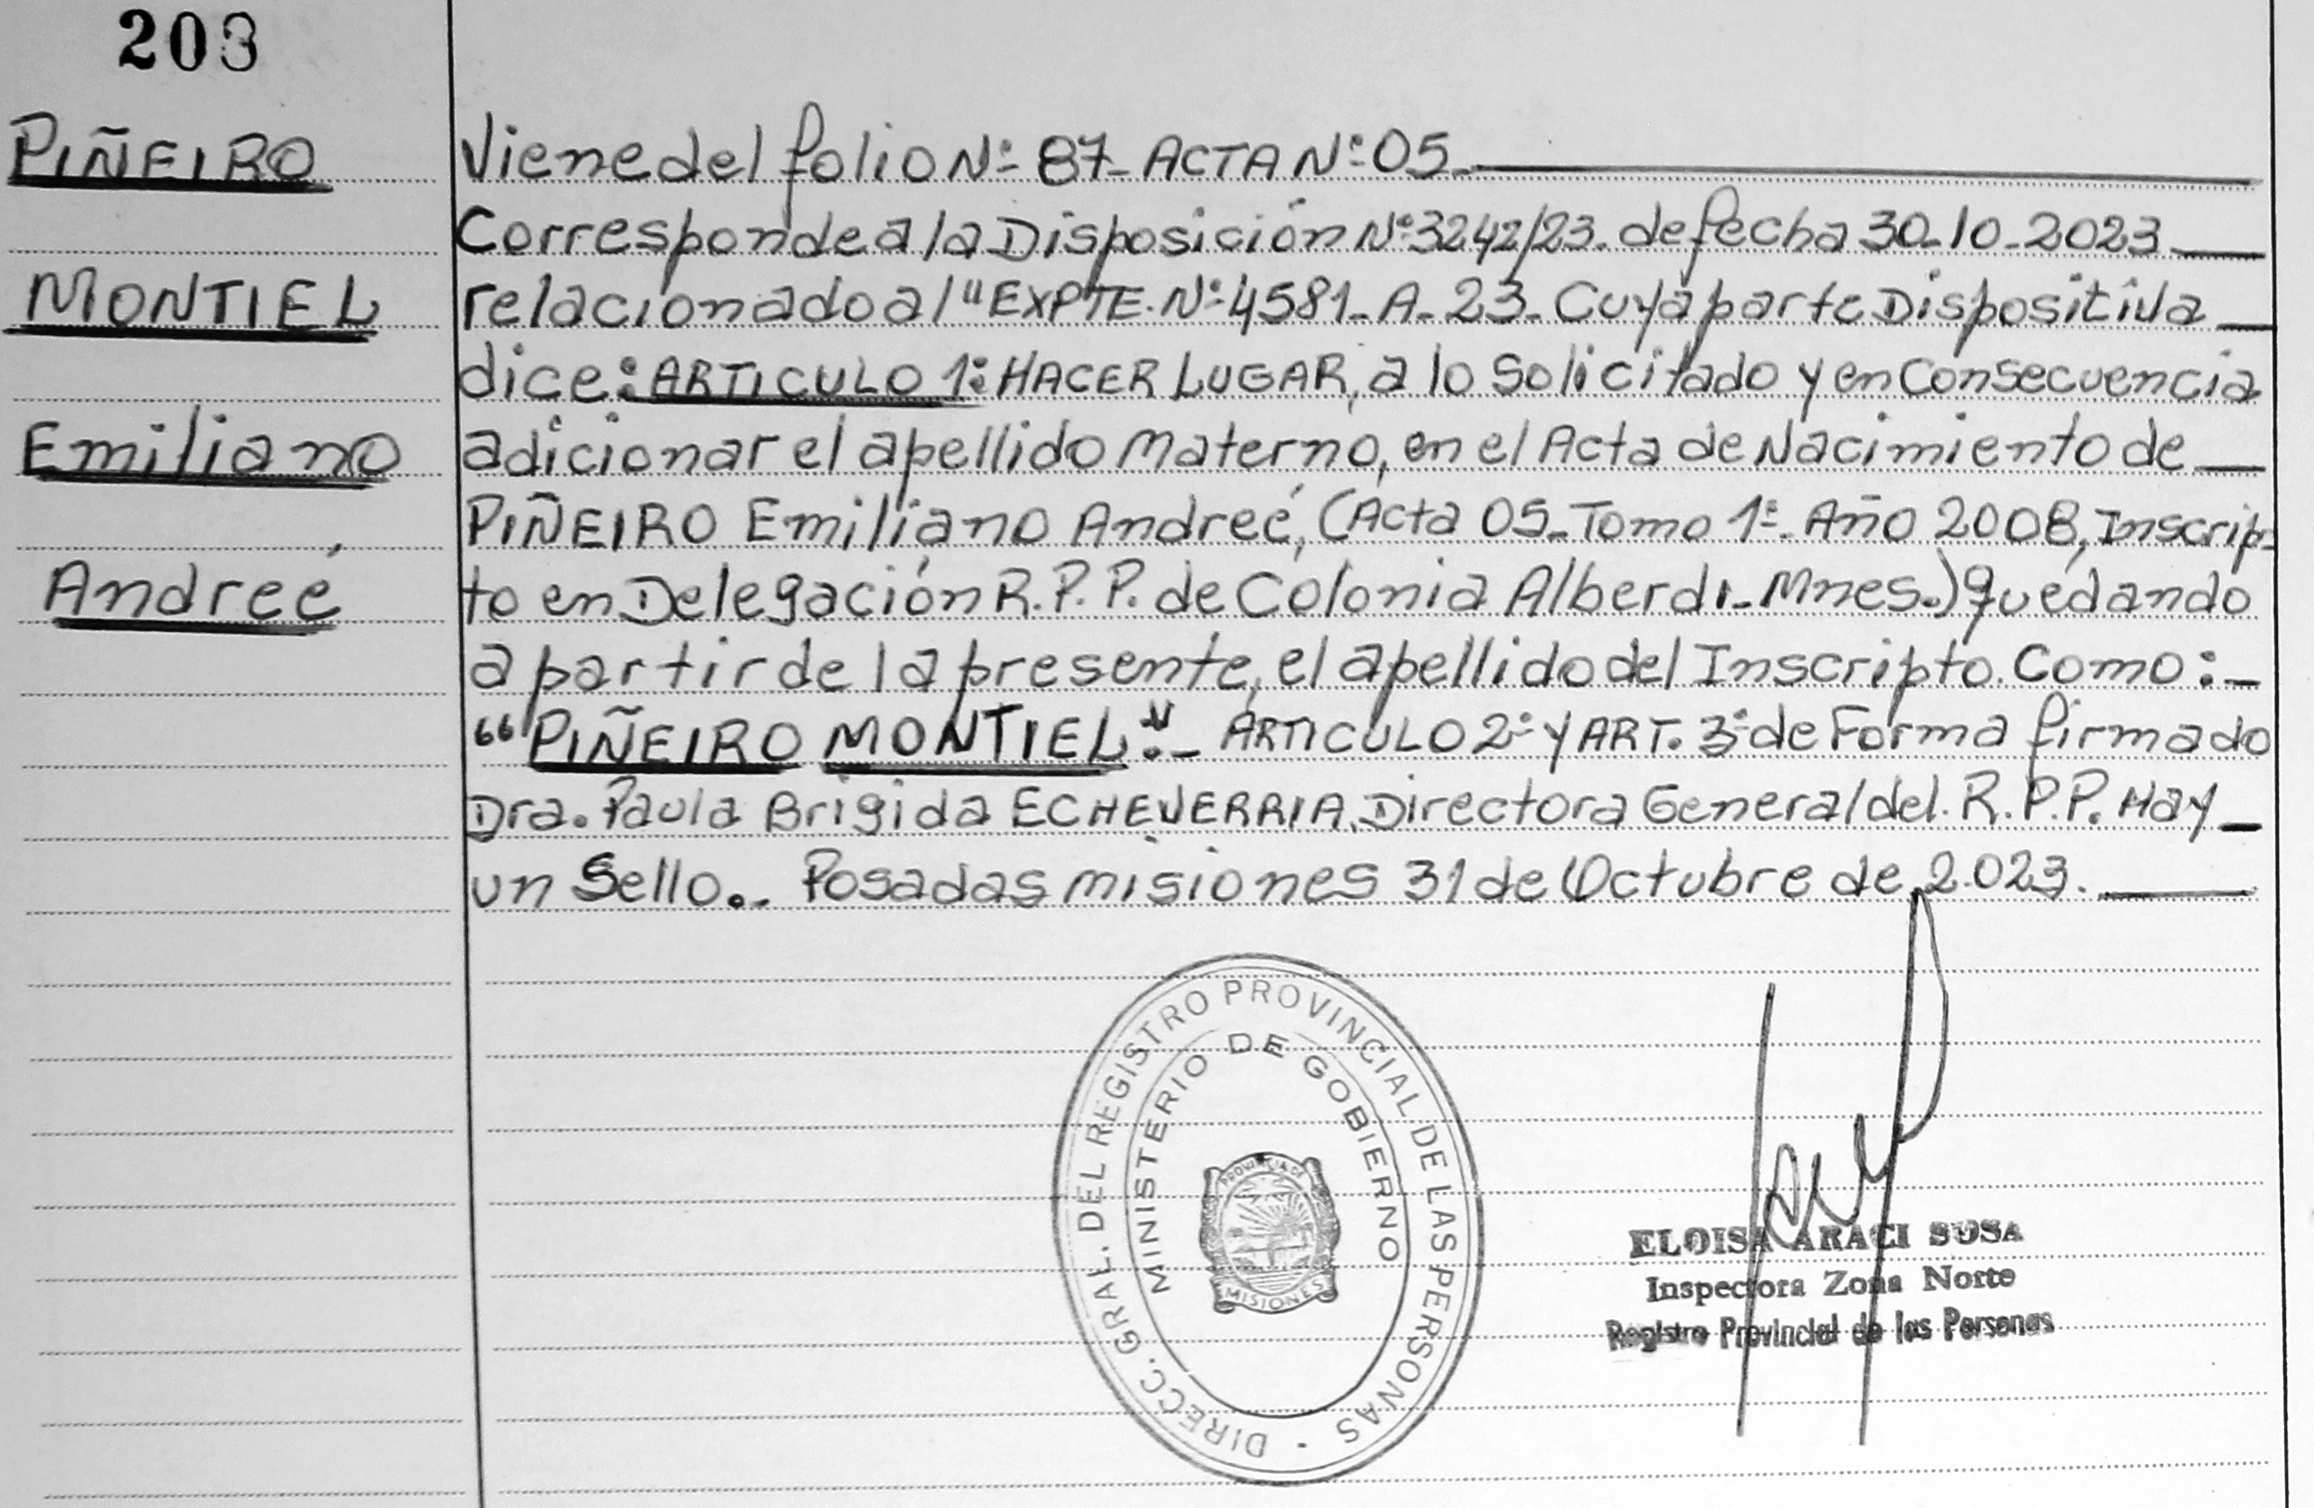 203
PIÑEIRO
MONTIEL
Emiliano
Andreé
Viene del folio Nº 87- ACTA Nº 05.-
Corresponde a la Disposición Nº 3242/23. de fecha 30-10-2023
relacionado al "EXPTE. Nº 4581-A-23- Cuya parte Dispositiva
dice: ARTICULO 1º: HACER LUGAR, a lo Solicitado y en Consecuencia
adicionar el apellido Materno, en el Acta de Nacimiento de
PIÑEIRO Emiliano Andreé, (Acta 05-Tomo 1º- Año 2008, Inscrip-
to en Delegación R.P.P. de Colonia Alberdi-Mnes.) quedando
a partir de la presente, el apellido del Inscripto. Como:-
"PIÑEIRO MONTIEL".- ARTICULO 2º Y ART. 3º de Forma firmado
Dra. Paula Brigida ECHEVERRIA, Directora General del. R.P.P. Hay
un Sello.- Posadas Misiones 31 de Octubre de 2.023.
DIRECC. GRAL. DEL REGISTRO PROVINCIAL DE LAS PERSONAS -
MINISTERIO DE GOBIERNO
PROVINCIA DE
MISIONES
ELOISA ARACI SOSA
Inspectora Zona Norte
Registro Provincial de las Personas